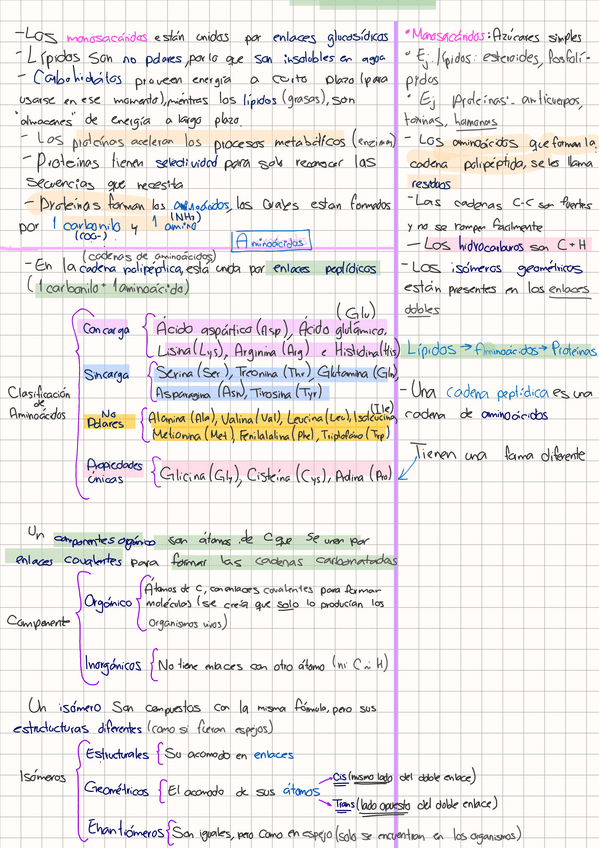 -Los monosacáridos están unidos por enlaces glucosídicos
-Lípidos son no polares, por lo que son insolubles en agua
- Carbohidratos proveen energía a corto plazo (para
usarse en ese momento), mientras los lípidos (grasas), son
"almacenes" de energía a largo plazo.
- Las proteínas aceleran los procesos metabólicos (enzimas)
- Proteínas tienen selectividad para solo reconocer las
secuencias que necesita
- Proteínas forman los aminoácidos, los cuales estan formados
por 1 carbonilo y 1 amino
(COO-)
(NH₂)
Aminoácidos
(cadenas de aminoácidos)
- En la cadena polipeptica, está unida por enlaces peptídicos
(1 carbonilo + 1 aminoácido)
Clasificación
de
Aminoácidos
Con carga
Ácido aspártico (Asp), Ácido glutámico.
(Glu)
Lisina (Lys), Arginina (Arg) e Histidina (His)
Sin carga
Serina (Ser), Treonina (Thr), Glutamina (Gln),
Asparagina (Asn), Tirosina (Tyr)
No
Polares
Alanina (Ala), Valina (Val), Leucina (Leu), Isoleucina,
(Ile)
Metionina (Met), Fenilalalina (Phe), Triptofano (Trp)
Propiedades
únicas
Glicina (Gly), Cisteína (Cys), Prolina (Pro)
Un componentes orgánico son átomos de C que se unen por
enlaces covalentes para formar las cadenas carbonatadas
Componente
Orgánico
Átomos de C, con enlaces covalentes para formar
moléculas (se creía que solo lo producían los
organismos vivos)
Inorgánicos
No tiene enlaces con otro átomo (ni C ni H)
Un isómero son compuestos con la misma fórmula, pero sus
estructucturas diferentes (como si fueran espejos)
Isómeros
Estructurales
Su acomodo en enlaces
Geométricos
El acomodo de sus átomos
Cis (mismo lado del doble enlace)
Trans (lado opuesto del doble enlace)
Enantiómeros
Son iguales, pero como en espejo (solo se encuentran en los organismos)
• Monosacáridos: Azúcares simples
• Ej: lípidos: esteroides, fosfolí-
pidos
• Ej Proteínas: anticuerpos,
toxinas, hormonas
- Los aminoácidos que forman la
cadena polipéptida, se les llama
residuos
-Las cadenas C-C son fuertes
y no se rompen facilmente
- Los hidrocarburos son C + H
- Los isómeros geométricos
están presentes en los enlaces
dobles
Lípidos → Aminoácidos → Proteínas
- Una cadena peptídica es una
cadena de aminoácidos
Tienen una forma diferente